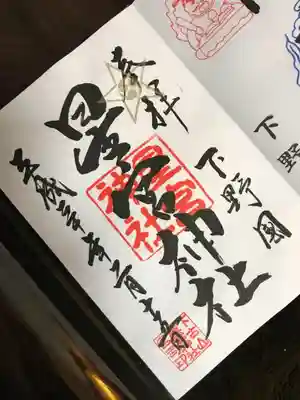 奉拝
下野國
星宮神社
星宮
神社
平成三十年二月十五日
下
野